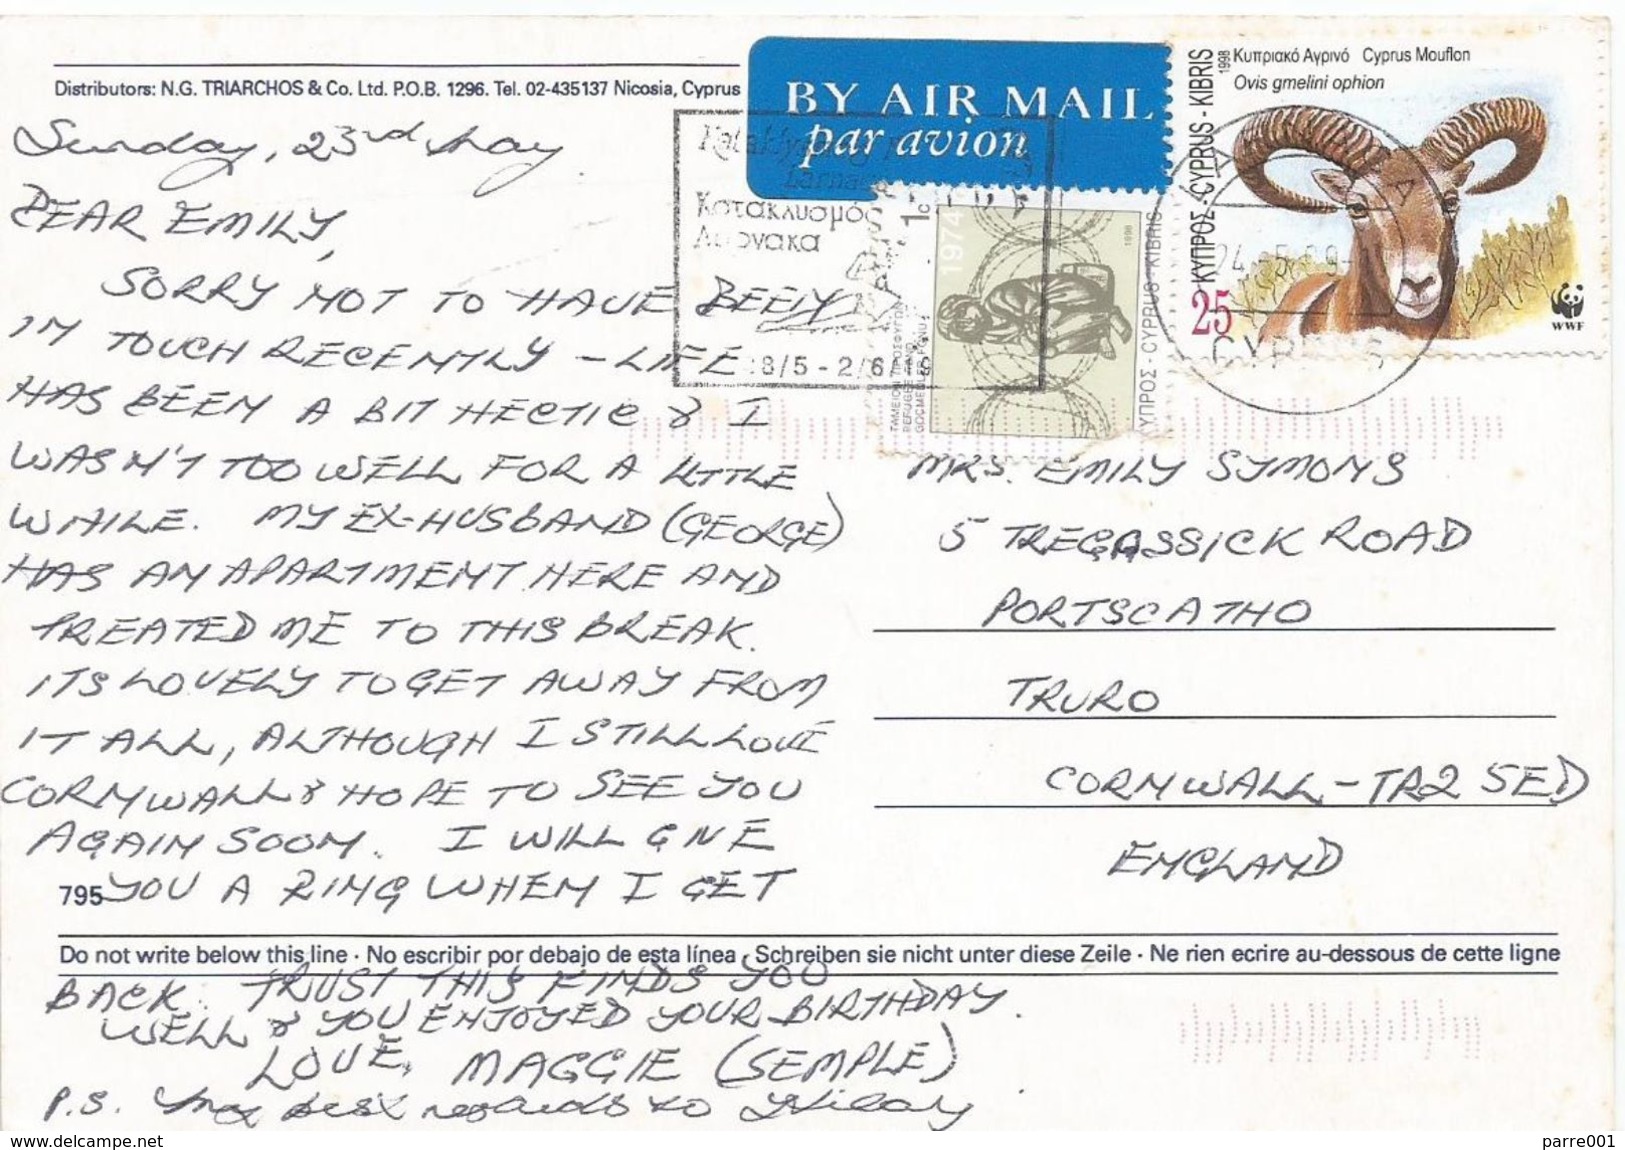 Distributors: N.G. TRIARCHOS & Co. Ltd. P.O.B. 1296. Tel. 02-435137 Nicosia, Cyprus
Sunday, 23rd May
DEAR EMILY,
SORRY NOT TO HAVE BEEN
IN TOUCH RECENTLY - LIFE
HAS BEEN A BIT HECTIC & I
WASN'T TOO WELL FOR A LITTLE
WHILE. MY EX-HUSBAND (GEORGE)
HAS AN APARTMENT HERE AND
TREATED ME TO THIS BREAK.
ITS LOVELY TO GET AWAY FROM
IT ALL, ALTHOUGH I STILL LOVE
CORNWALL & HOPE TO SEE YOU
AGAIN SOON. I WILL GIVE
795 YOU A RING WHEN I GET
Do not write below this line · No escribir por debajo de esta línea · Schreiben sie nicht unter diese Zeile · Ne rien ecrire au-dessous de cette ligne
BACK. TRUST THIS FINDS YOU
WELL & YOU ENJOYED YOUR BIRTHDAY.
LOVE, MAGGIE (SEMPLE)
P.S. best regards to Hilary
BY AIR MAIL
par avion
Κατακλυσμός
Λάρνακα
18/5 - 2/6
1c
1974
1998
ΤΑΜΕΙΟΝ ΠΡΟΣΦΥΓΩΝ
REFUGEE FUND
GÖÇMENLER FONU
ΚΥΠΡΟΣ - CYPRUS - KIBRIS
ΚΥΠΡΟΣ - CYPRUS - KIBRIS
1998
Κυπριακό Αγρινό Cyprus Mouflon
Ovis gmelini ophion
25
WWF
CYPRUS
MRS. EMILY SYMONS
5 TREGASSICK ROAD
PORTSCATHO
TRURO
CORNWALL - TR2 5ED
ENGLAND
www.delcampe.net
parre001